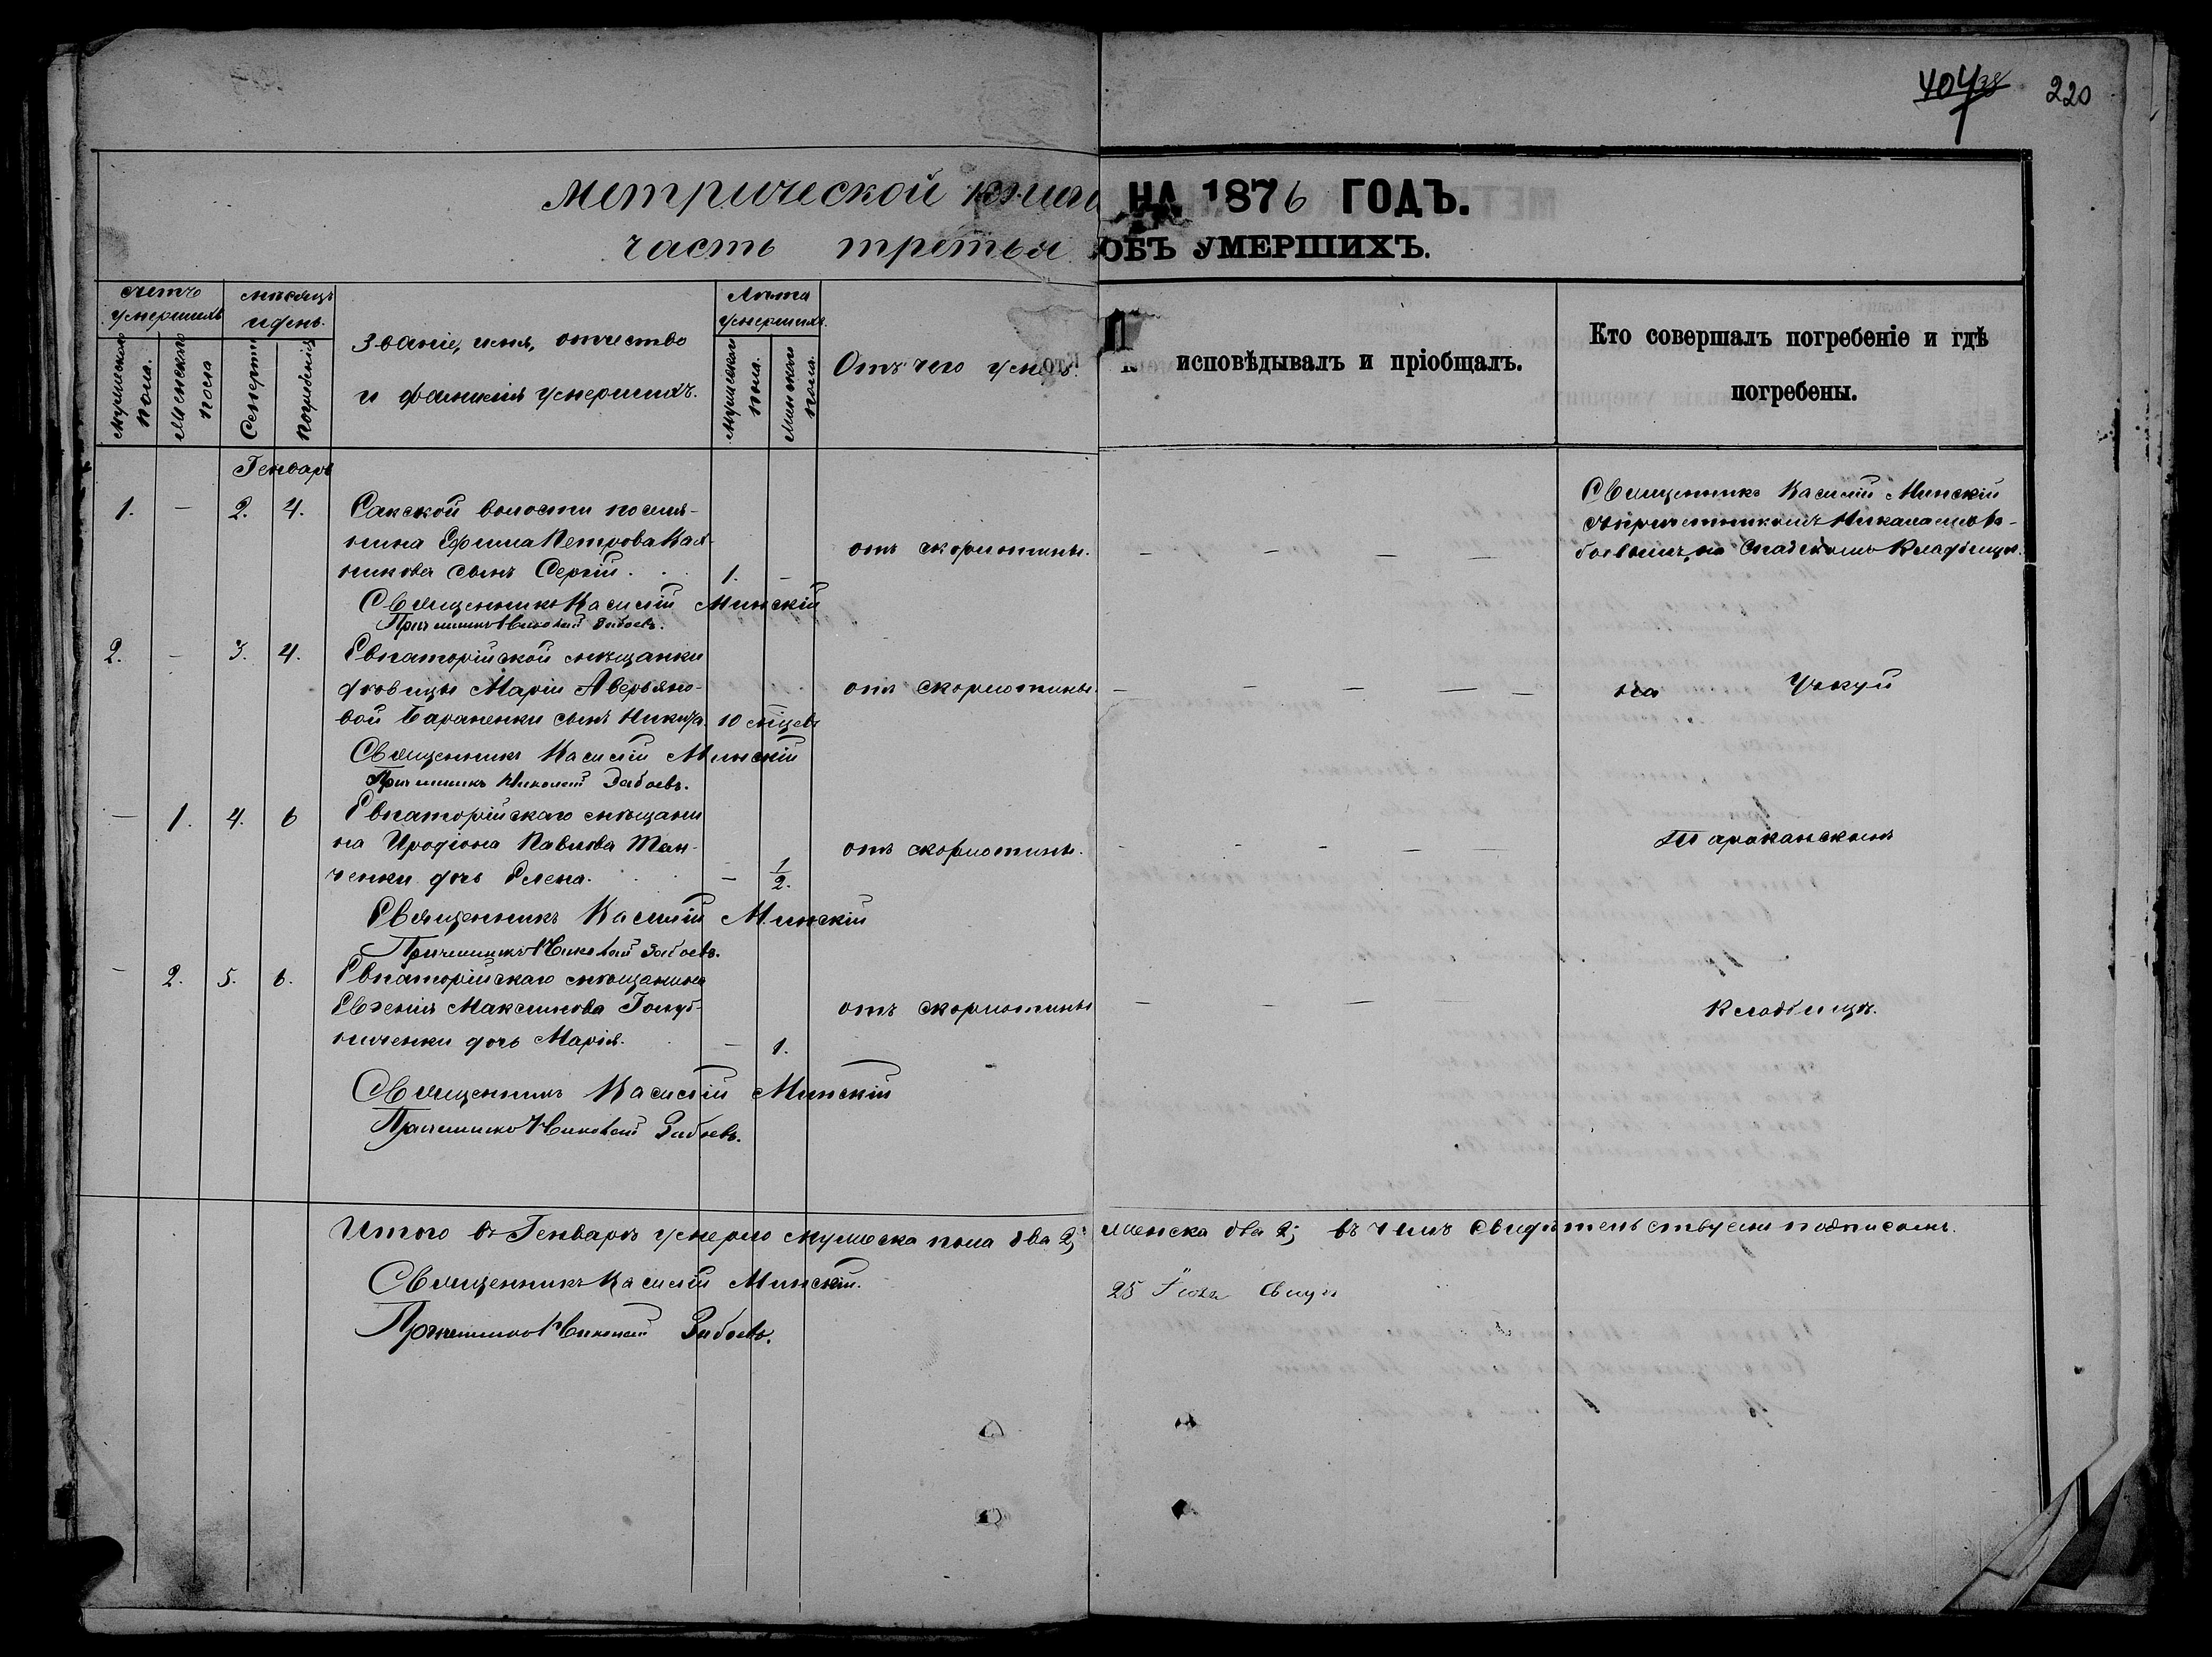 404 38 220
метрической книги НА 1876 ГОДЪ.
часть третья ОБЪ УМЕРШИХЪ.
счетъ умершихъ
мѣсяцъ и день.
Званіе, имя, отчество
и фамилія умершихъ.
Лѣта умершихъ.
Отъ чего умеръ.
исповѣдывалъ и пріобщалъ.
Кто совершалъ погребеніе и гдѣ
погребены.
Мужескаго пола.
Женскаго пола
Смерти
Погребенія
Мужескаго пола.
Женскаго пола.
Генварь
1. — 2. 4. Сакской волости поселя-
нина Ефима Петрова
никова сынъ Сергій. 1. —
отъ скорлотины. — — — —
Священникъ Василій Минскій
съ причетникомъ Николаемъ За-
боевымъ, на Кладбищѣ.
Священникъ Василій Минскій
Причетникъ Николай Забоевъ.
2. — 3. 4. Евпаторійской мѣщанки
дковицы Маріи Аверьяно-
вой Бараненки сынъ Никита. 10 мѣцевъ
отъ скорлотины. — — — — —
на Учкуй
Священникъ Василій Минскій
Причетникъ Николай Забоевъ.
— 1. 4. 6 Евпаторійскаго мѣщани
на Иродіона Павлова Тан-
ченки дочь Елена. — 1/2.
отъ скорлотины. — — — — —
Тараканскимъ
Священникъ Василій Минскій
Причетникъ Николай Забоевъ.
— 2. 5. 6. Евпаторійскаго мѣщанина
Евгенія Максимова Голуб-
ниченки дочь Марія. — 1.
отъ скорлотины — — — —
Кладбищѣ.
Священникъ Василій Минскій
Причетникъ Николай Забоевъ.
Итого въ Генварѣ умерло мужеска пола два 2; женска два 2; въ чемъ свидѣтельствуемъ подписомъ.
Священникъ Василій Минскій.
Причетникъ Николай Забоевъ.
25